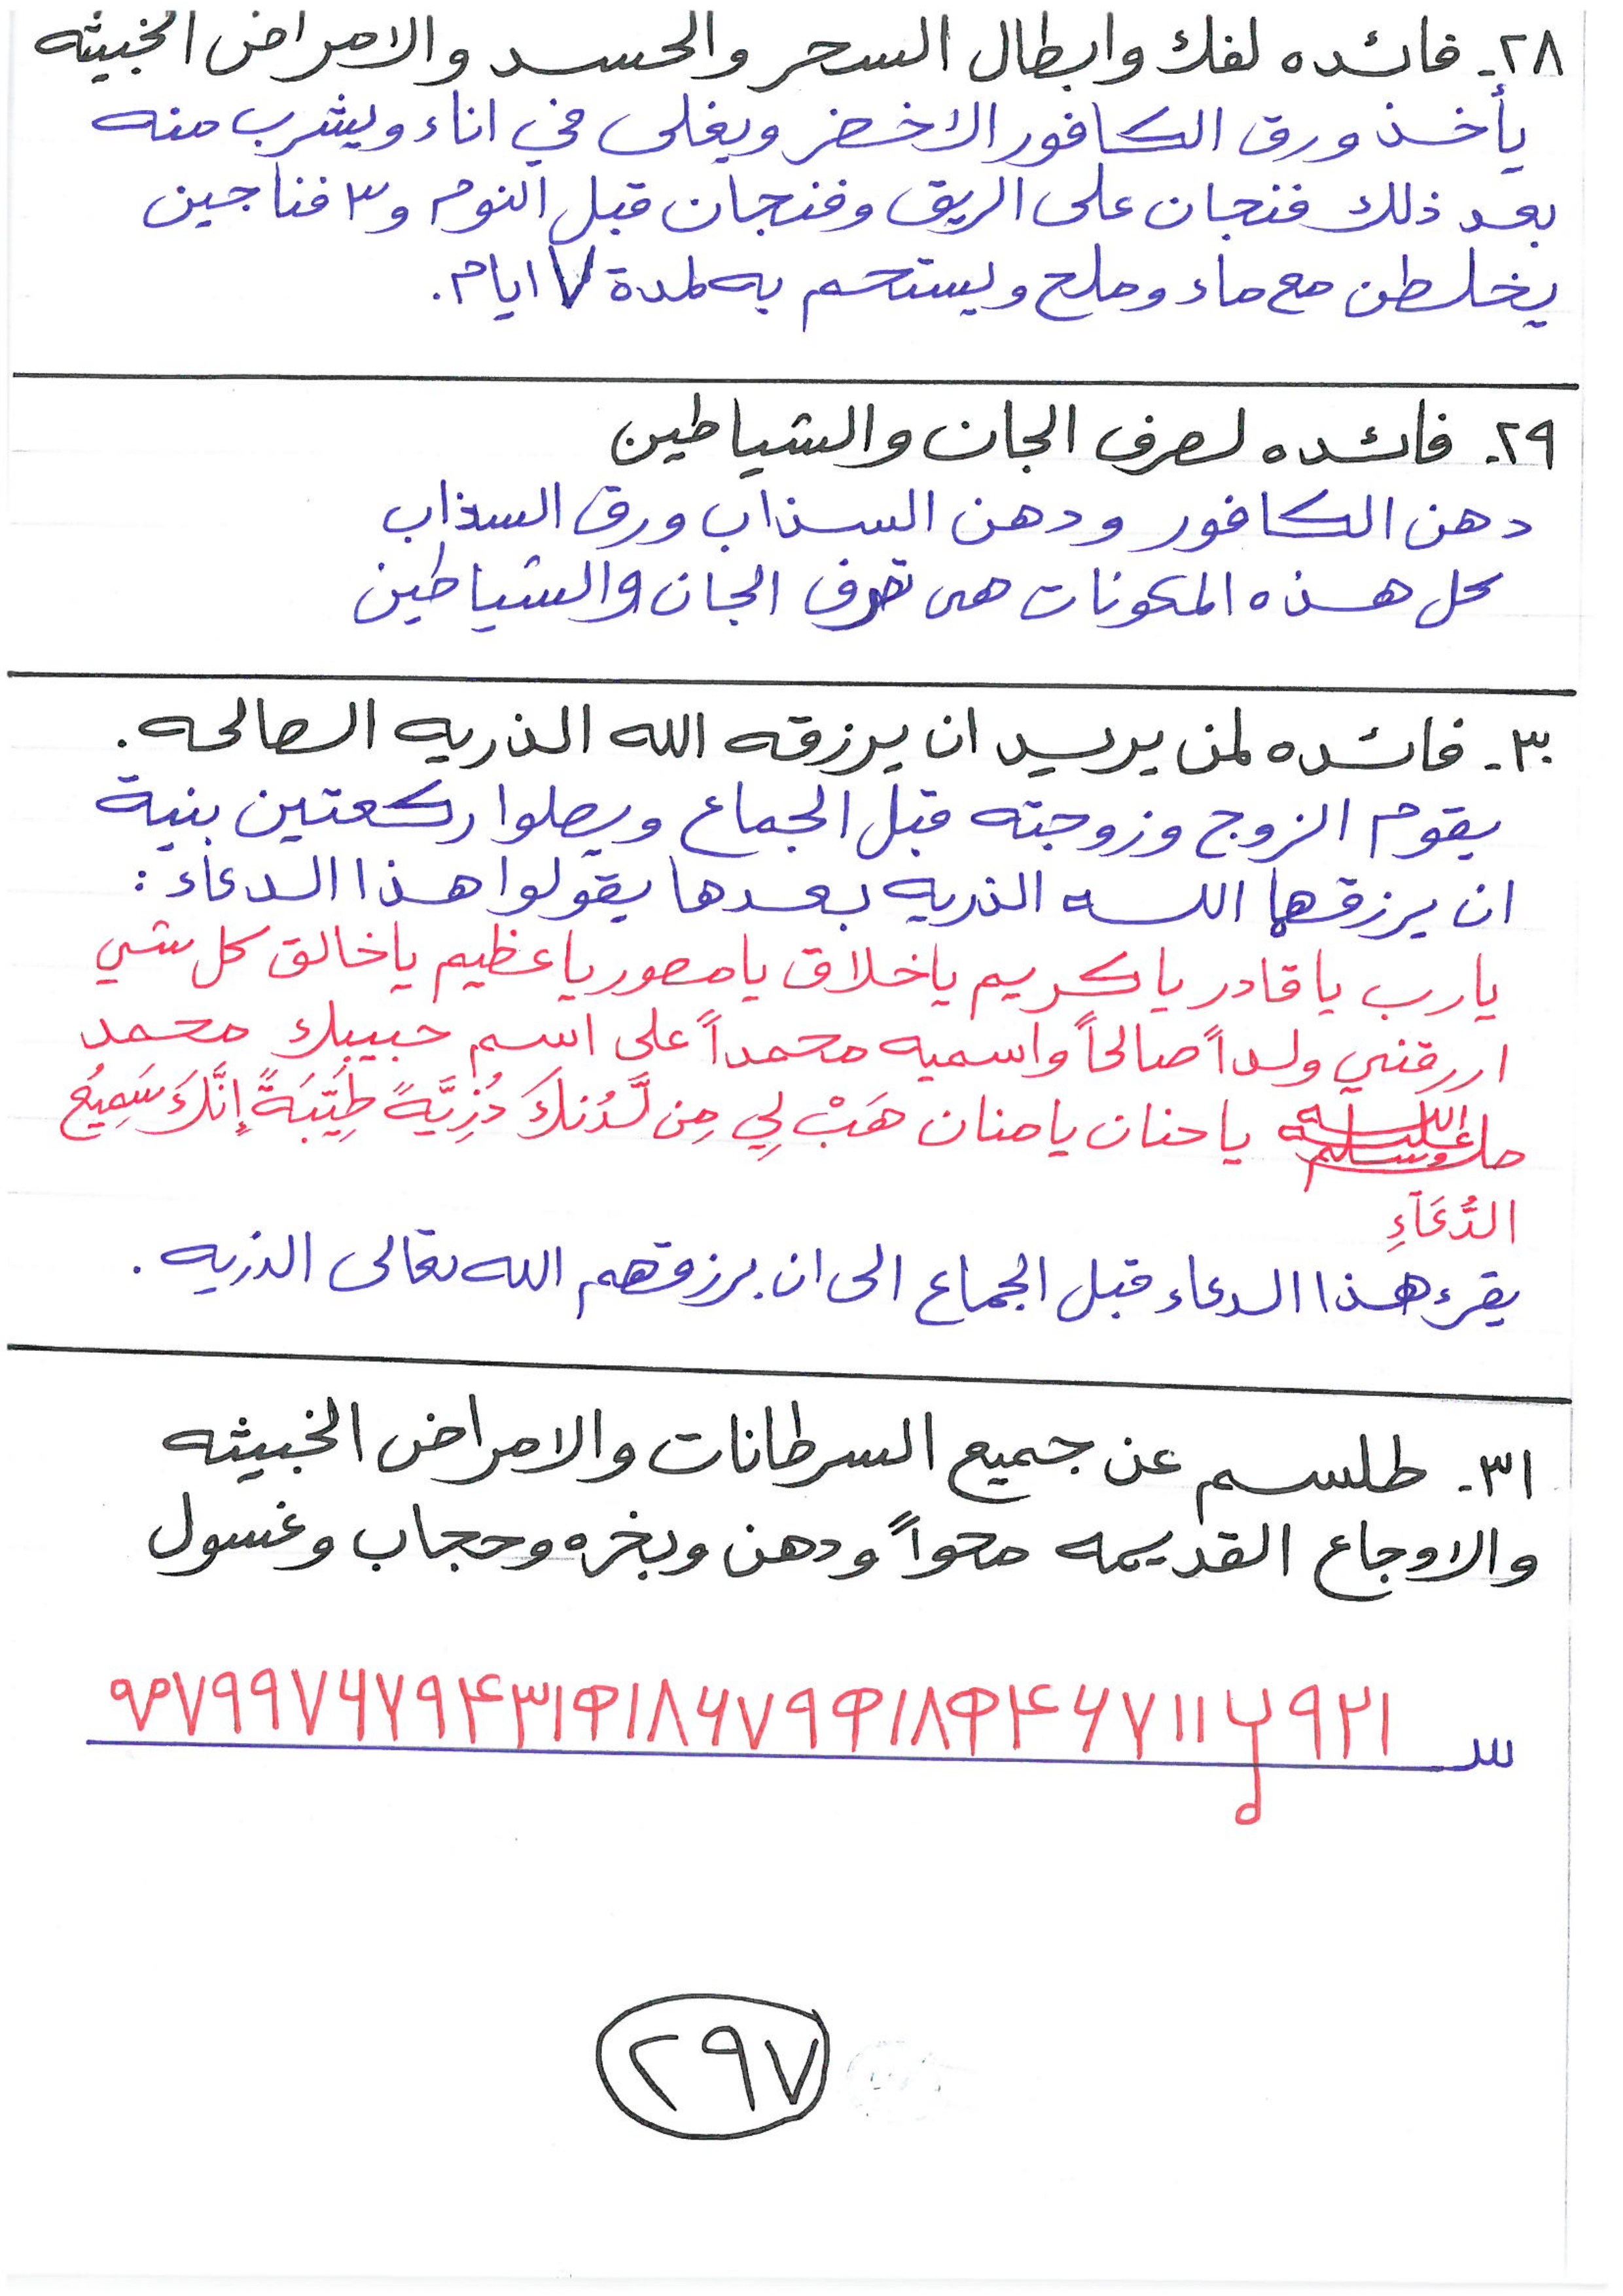 ٢٨- فائده لفك وابطال السحر والحسد والامراض الخبيثه
يأخذ ورق الكافور الاخضر ويغلى في اناء ويشرب منه
بعد ذلك فنجان على الريق وفنجان قبل النوم و٣ فناجين
يخلطن مع ماء وملح ويستحم به لمدة ٧ ايام.
٢٩- فائده لصرف الجان والشياطين
دهن الكافور ودهن السذاب ورق السذاب
كل هذه المكونات هى تصرف الجان والشياطين
٣٠- فائده لمن يريد ان يرزقه الله الذريه الصالحه.
يقوم الزوج وزوجته قبل الجماع ويصلوا ركعتين بنية
ان يرزقهما الله الذريه بعدها يقولوا هذا الدعاء :
يارب ياقادر ياكريم ياخلاق يامصور ياعظيم ياخالق كل شي
ارزقني ولداً صالحاً واسميه محمداً على اسم حبيبك محمد
صلى الله عليه وسلم ياحنان يامنان هَبْ لِي مِن لَّدُنكَ ذُرِّيَّةً طَيِّبَةً إِنَّكَ سَمِيعُ
الدُّعَآءِ
يقرء هذا الدعاء قبل الجماع الى ان يرزقهم الله تعالى الذريه .
٣١- طلسم عن جميع السرطانات والامراض الخبيثه
والاوجاع القديمه محواً ودهن وبخره وحجاب وغسول
٢٩٧